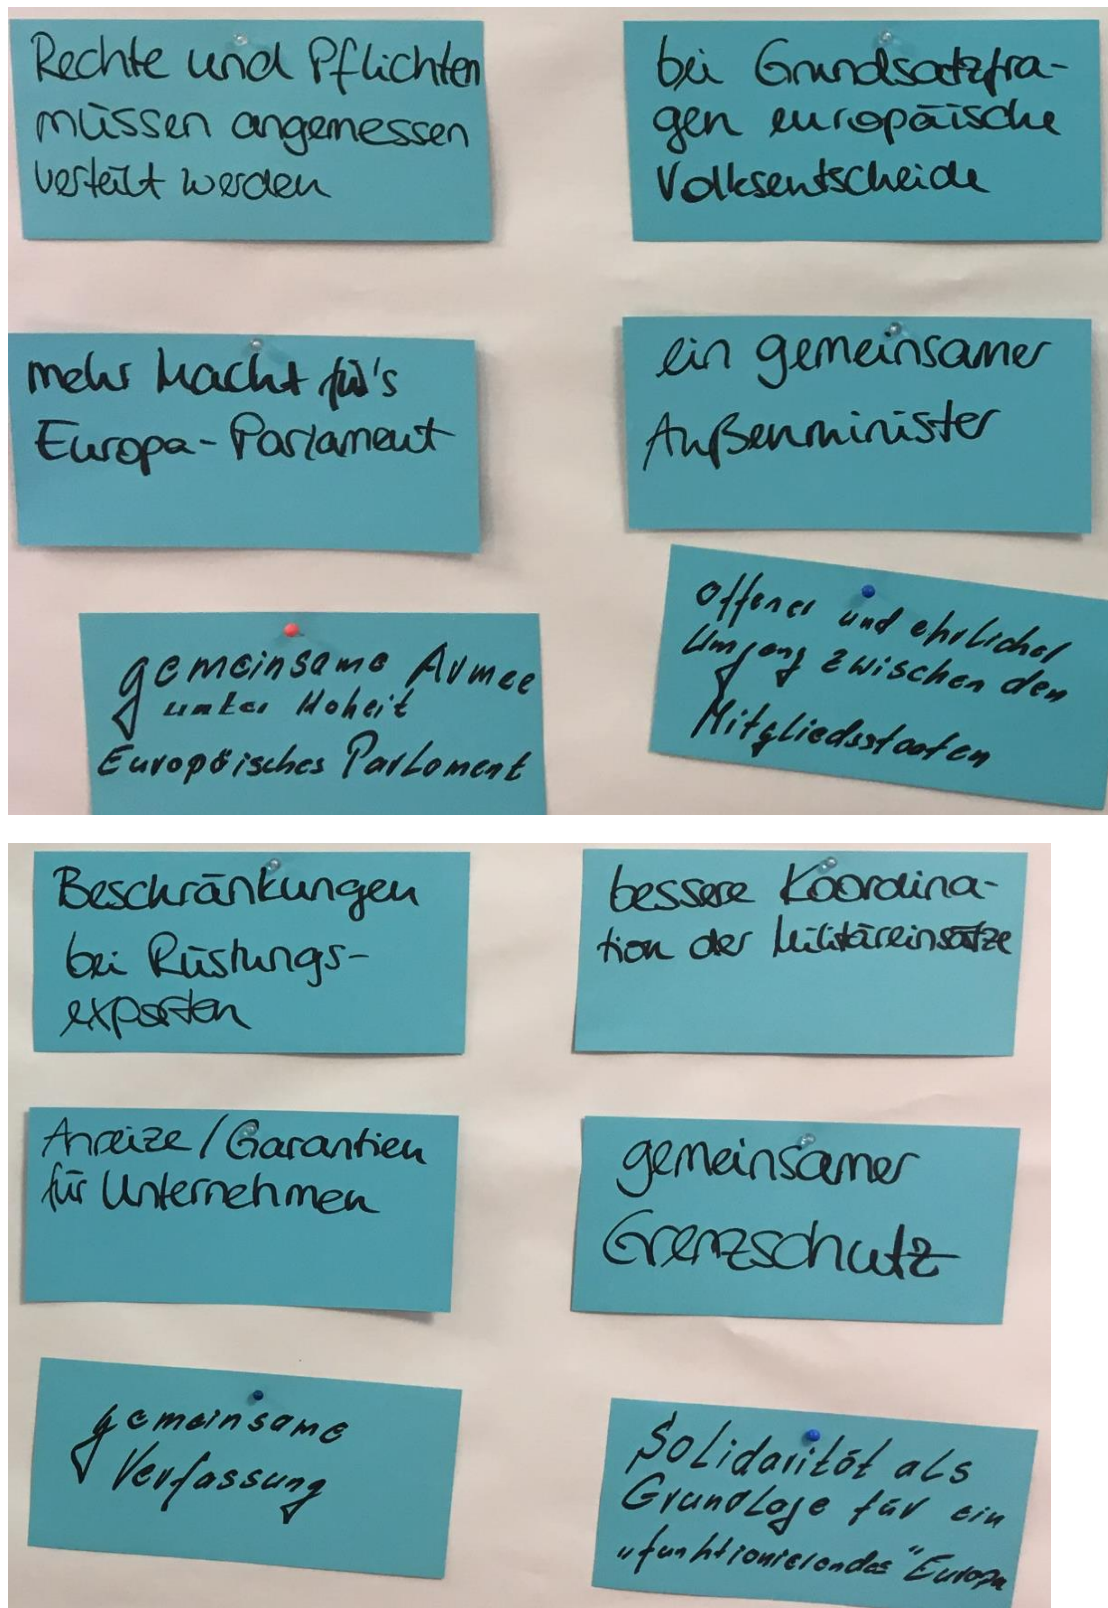 Rechte und Pflichten
müssen angemessen
verteilt werden
bei Grundsatzfra-
gen europäische
Volksentscheide
mehr Macht für's
Europa-Parlament
ein gemeinsamer
Außenminister
gemeinsame Armee
unter Hoheit
Europäisches Parlament
Offener und ehrlicher
Umgang zwischen den
Mitgliedsstaaten
Beschränkungen
bei Rüstungs-
exporten
bessere Koordina-
tion der Militäreinsätze
Anreize / Garantien
für Unternehmen
gemeinsamer
Grenzschutz
gemeinsame
Verfassung
Solidarität als
Grundlage für ein
„funktionierendes" Europa